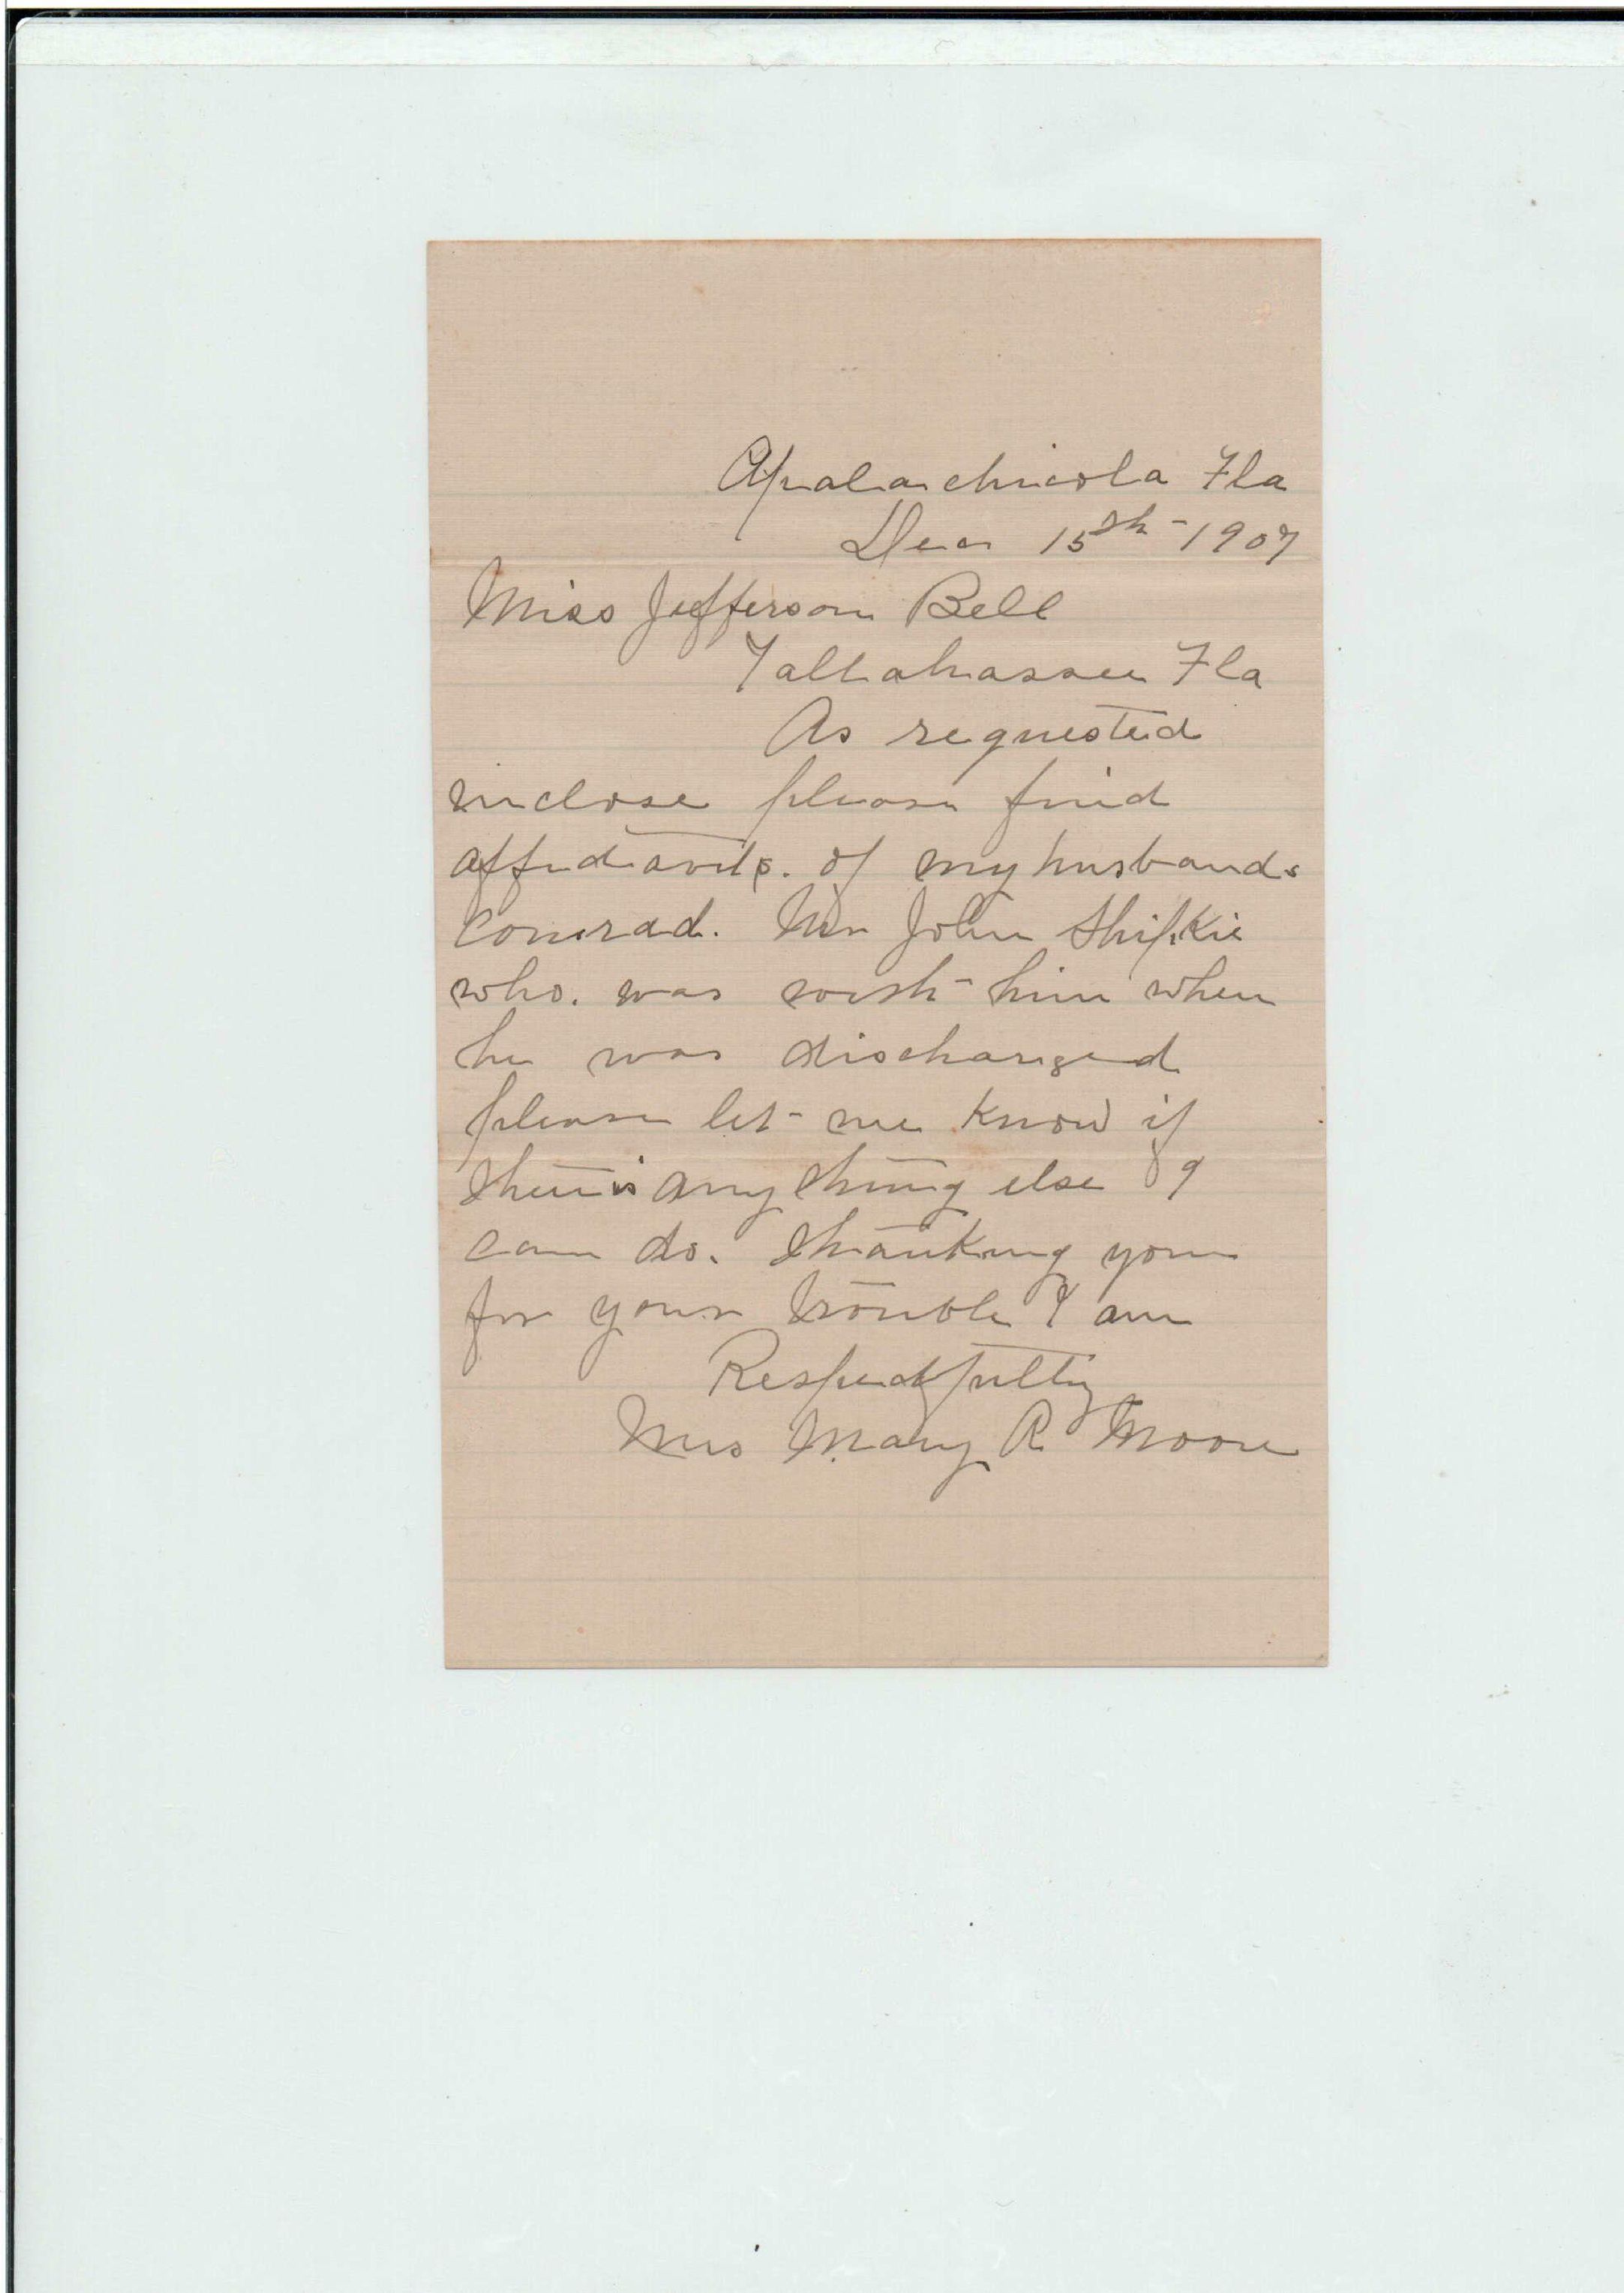 Apalachicola Fla
Dec 15th - 1907
Miss Jefferson Bell
Tallahassee Fla
As requested
inclose please find
affidavits. of my husbands
Comrad. Mr John Shipkie
who. was with him when
he was discharged
please let me know if
there is any thing else I
can do. thanking you
for your trouble I am
Respectfully
Mrs Mary R Moore